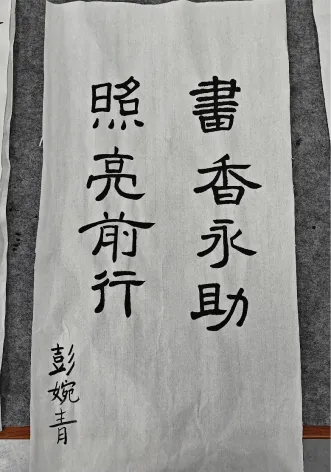 書香永助
照亮前行
彭婉青